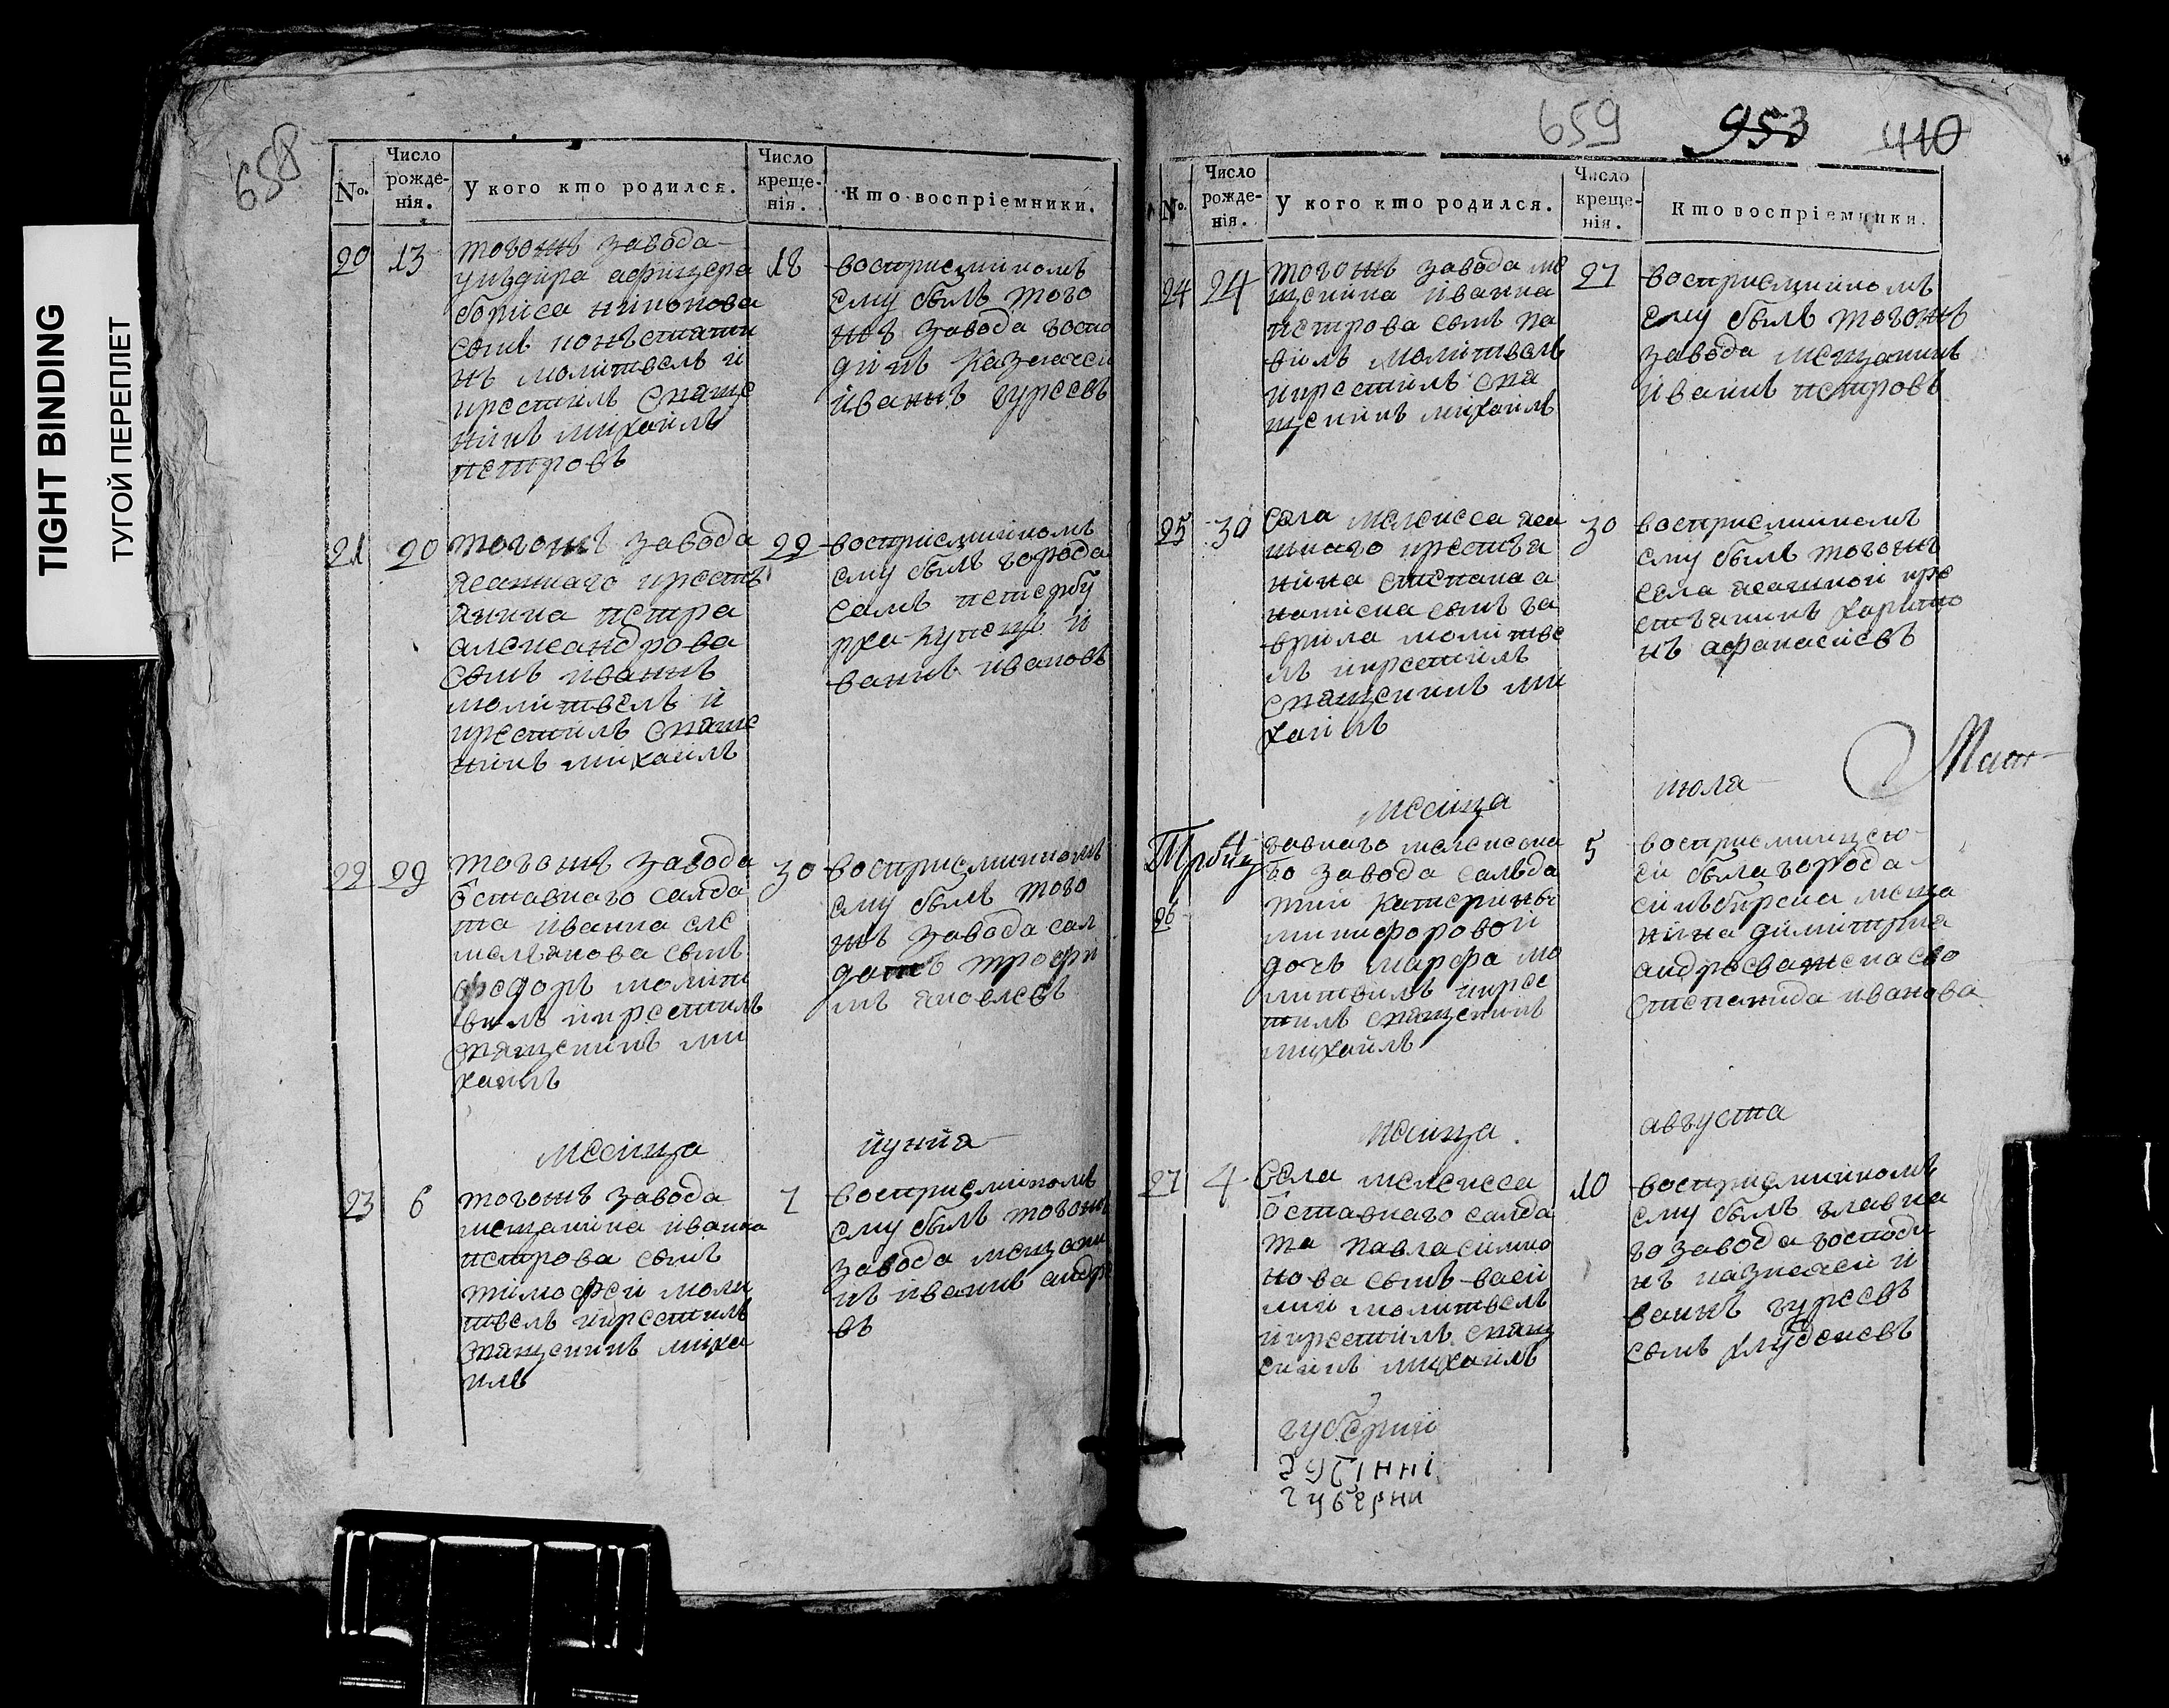 TIGHT BINDING
ТУГОЙ ПЕРЕПЛЕТ
658
№.
Число рожде-нія.
У кого кто родился.
Число креще-нія.
Кто воспріемники.
20 13
тогожъ завода
ундира афицера
бориса
сынъ
нъ молитвелъ и
крестилъ свяще
никъ михаилъ
петровъ
18
восприемникомъ
ему былъ того
жъ завода госпо
динъ казначеи
иванъ гуреевъ
21 20
тогожъ завода
ясашнаго крестъ
янина петра
александрова
сынъ иваннъ
молитвелъ и
крестилъ свяще
никъ михаилъ
22
восприемникомъ
ему былъ города
санъ петербу
рха купецъ и
ваннъ ивановъ
22 29
тогожъ завода
ѿставнаго салда
та иванна еме
лянова сынъ
федоръ молит
вилъ икрестилъ
священникъ ми
хаилъ
30
восприемникомъ
ему былъ того
жъ завода сал
датъ трофи
мъ яковлевъ
месица июниа
23 6
тогожъ завода
мещанина иванна
петрова сынъ
тимофеи моли
твелъ икрестилъ
священникъ миха
илъ
7
восприемникомъ
ему былъ тогожъ
завода мещани
нъ иваннъ андре
въ
659 953 410
№.
Число рожде-нія.
У кого кто родился.
Число креще-нія.
Кто воспріемники.
24 24
тогожъ завода ме
щенина иванна
петрова сынъ па
велъ молитвелъ
икрестилъ свя
щенникъ михаилъ
27
восприемникомъ
ему былъ тогожъ
завода мещанинъ
иваннъ петровъ
25 30
села мелекесса яса
шнаго крестъя
нина степана
сынъ га
врила молитве
лъ икрестилъ
священникъ ми
хаилъ
30
восприемникомъ
ему былъ тогожъ
села ясашнои кре
стъянинъ харито
нъ афанасиевъ
месица июля
26 4
главнаго мелекеска
го завода салъда
тки катерины
никифоровои
дочь марфа мо
литвилъ икрес
тилъ священникъ
михаилъ
5
восприемницею
еи была города
синъбирска меща
нина димитрия
андреева жена ево
степанида иванова
месица августа
27 4
села мелекесса
ѿставнаго салда
та павла симио
нова сынъ васи
лии молитвелъ
икрестилъ свящ
еникъ михаилъ
10
восприемникомъ
ему былъ главна
го завода господи
нъ казначеи и
ваннъ гуреевъ
сынъ
губерни
губерни